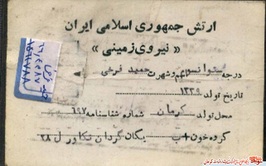 ارتش جمهوری اسلامی ایران
« نیروی زمینی »
درجه ستوانسوم نام و شهرت حمید فرخی
تاریخ تولد ۱۳۳۹
محل تولد کرمان شماره شناسنامه ۶۹۷
گروه خون B+ یگان گردان تکاور ل ۲۸